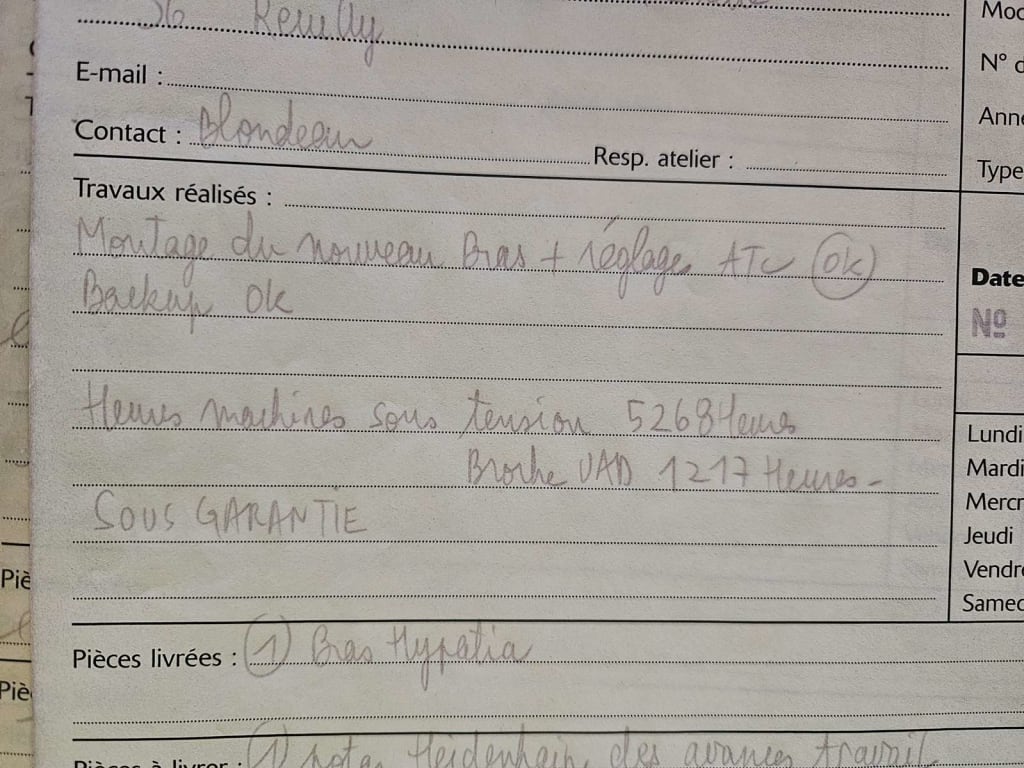 36 Reuilly
Moc
E-mail :
N° d
Contact : Blondeau
Resp. atelier :
Anné
Type
Travaux réalisés :
Montage du nouveau Bras + réglage ATC (OK)
Backup OK
Date
Nº
Heures machines sous tension 5268 Heures
Lundi
Broche UAD 1217 Heures-
Mardi
SOUS GARANTIE
Mercr
Jeudi
Vendre
Samed
Piè
Pièces livrées : (1) Bras Hypatia
Piè
Pièces à livrer : (1) pota Heidenhain des avances travail